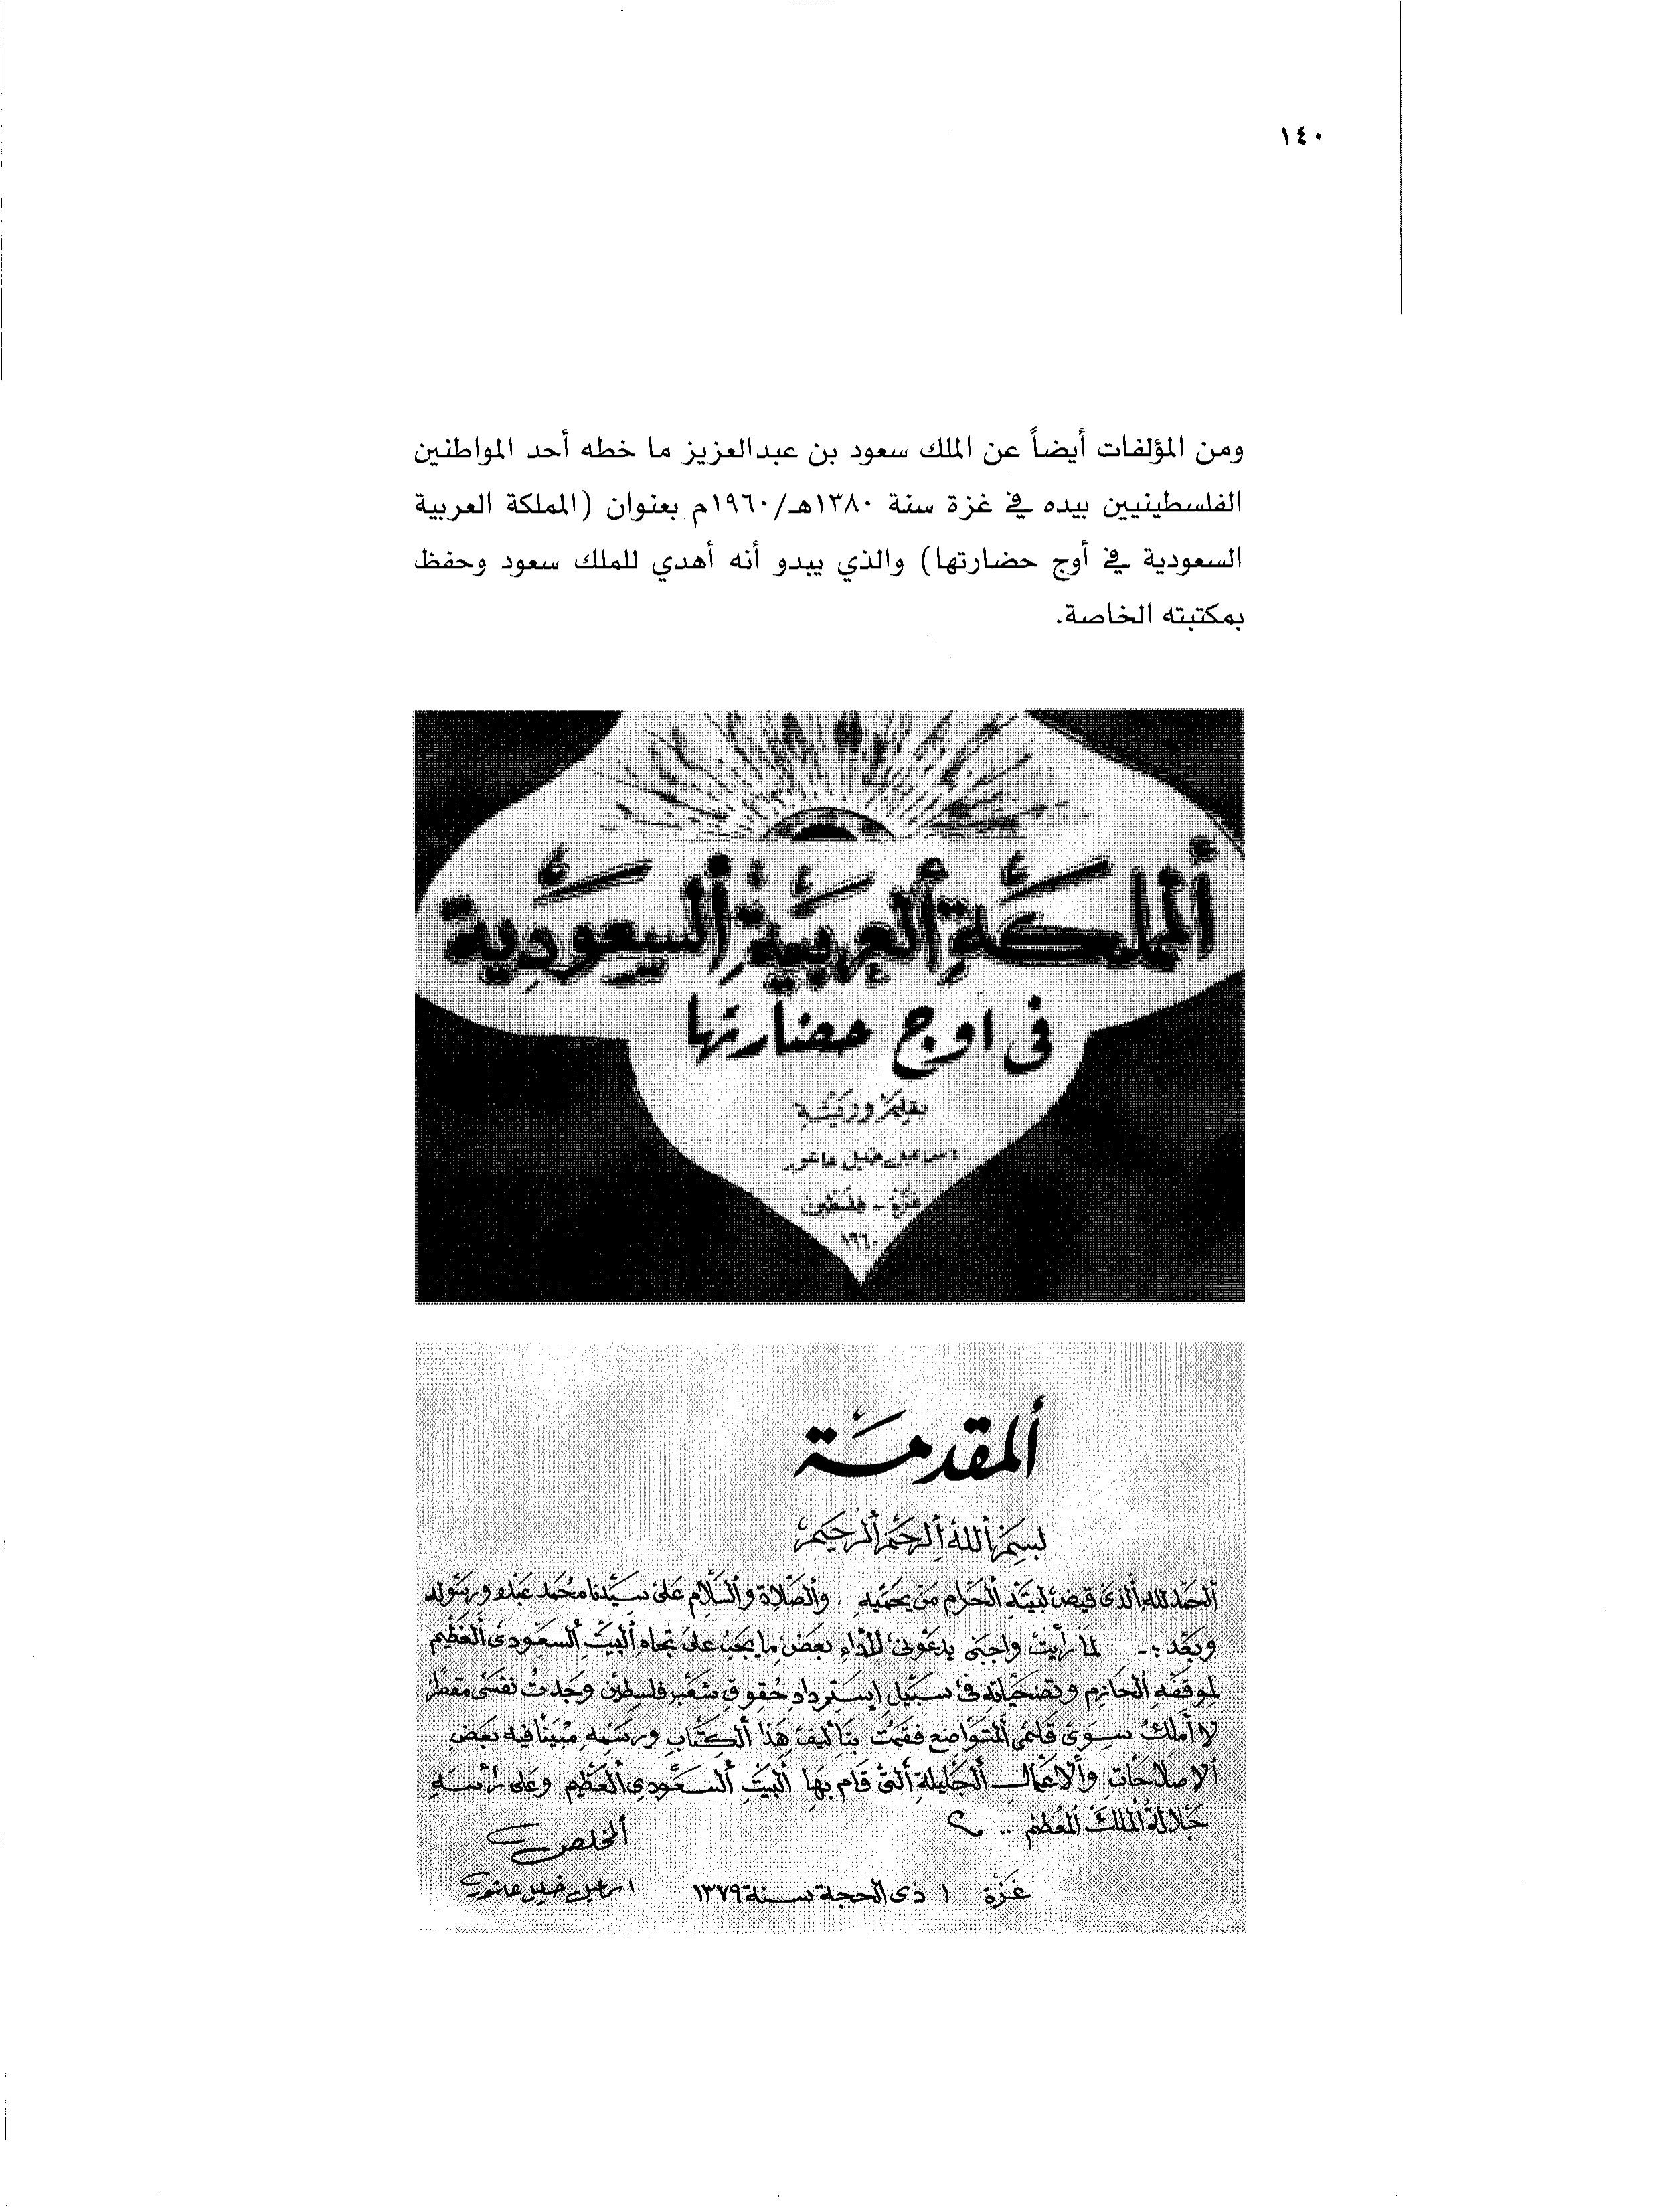 ١٤٠
ومن المؤلفات أيضاً عن الملك سعود بن عبدالعزيز ما خطه أحد المواطنين
الفلسطينيين بيده في غزة سنة ١٣٨٠هـ/١٩٦٠م بعنوان (المملكة العربية
السعودية في أوج حضارتها) والذي يبدو أنه أهدي للملك سعود وحفظ
بمكتبته الخاصة.
ألمملكَة ألعربيَّة ألسعوَدية
فى اوج حضارتها
بقلم وريشة
اسماعيل خليل عاشور
غزة - فلسطين
١٩٦٠
ألمقدمَة
بسم ألله ألرحمن ألرحيم
ألحمد لله ألذى قيض لبيته ألحرام من يحميه . وألصلاة وألسلام على سيدنا محمد عبده ورسوله
وبعد :- لما رأيت واجبى يدعونى لأداء بعض ما يجب على تجاه ألبيت ألسعودى ألعظيم
لموقفه ألحازم وتضحياته فى سبيل إسترداد حقوق شعب فلسطين وجدت نفسى مقصرا
لا أملك سوى قلمى ألمتواضع فقمت بتأليف هذا ألكتاب ورسمه مبينا فيه بعض
ألاصلاحات وألاعمال ألجليلة ألتى قام بها ألبيت ألسعودى ألعظيم وعلى رأسه
جلالة ألملك ألمعظم ..
ألمخلص
غزة ١ ذى ألحجة سنة ١٣٧٩ اسماعيل خليل عاشور